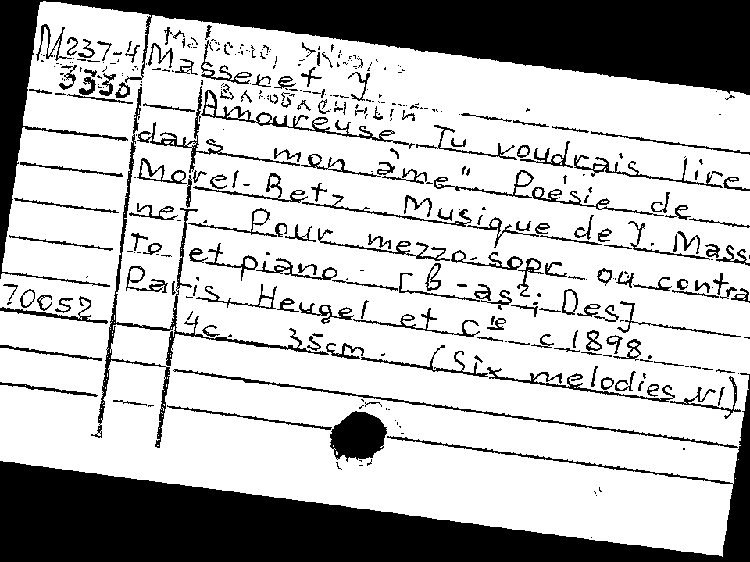 M237-4
3335
Massenet, J.
Amoureuse. Tu voudrais lire
dans mon âme." Poésie de
Morel-Retz. Musique de J. Mass
net. Pour mezzo-sopr. ou contra
To et piano. [b-as²; Des]
Paris, Heugel et Cie c 1898.
70052
4c. 35cm. (Six melodies N1)